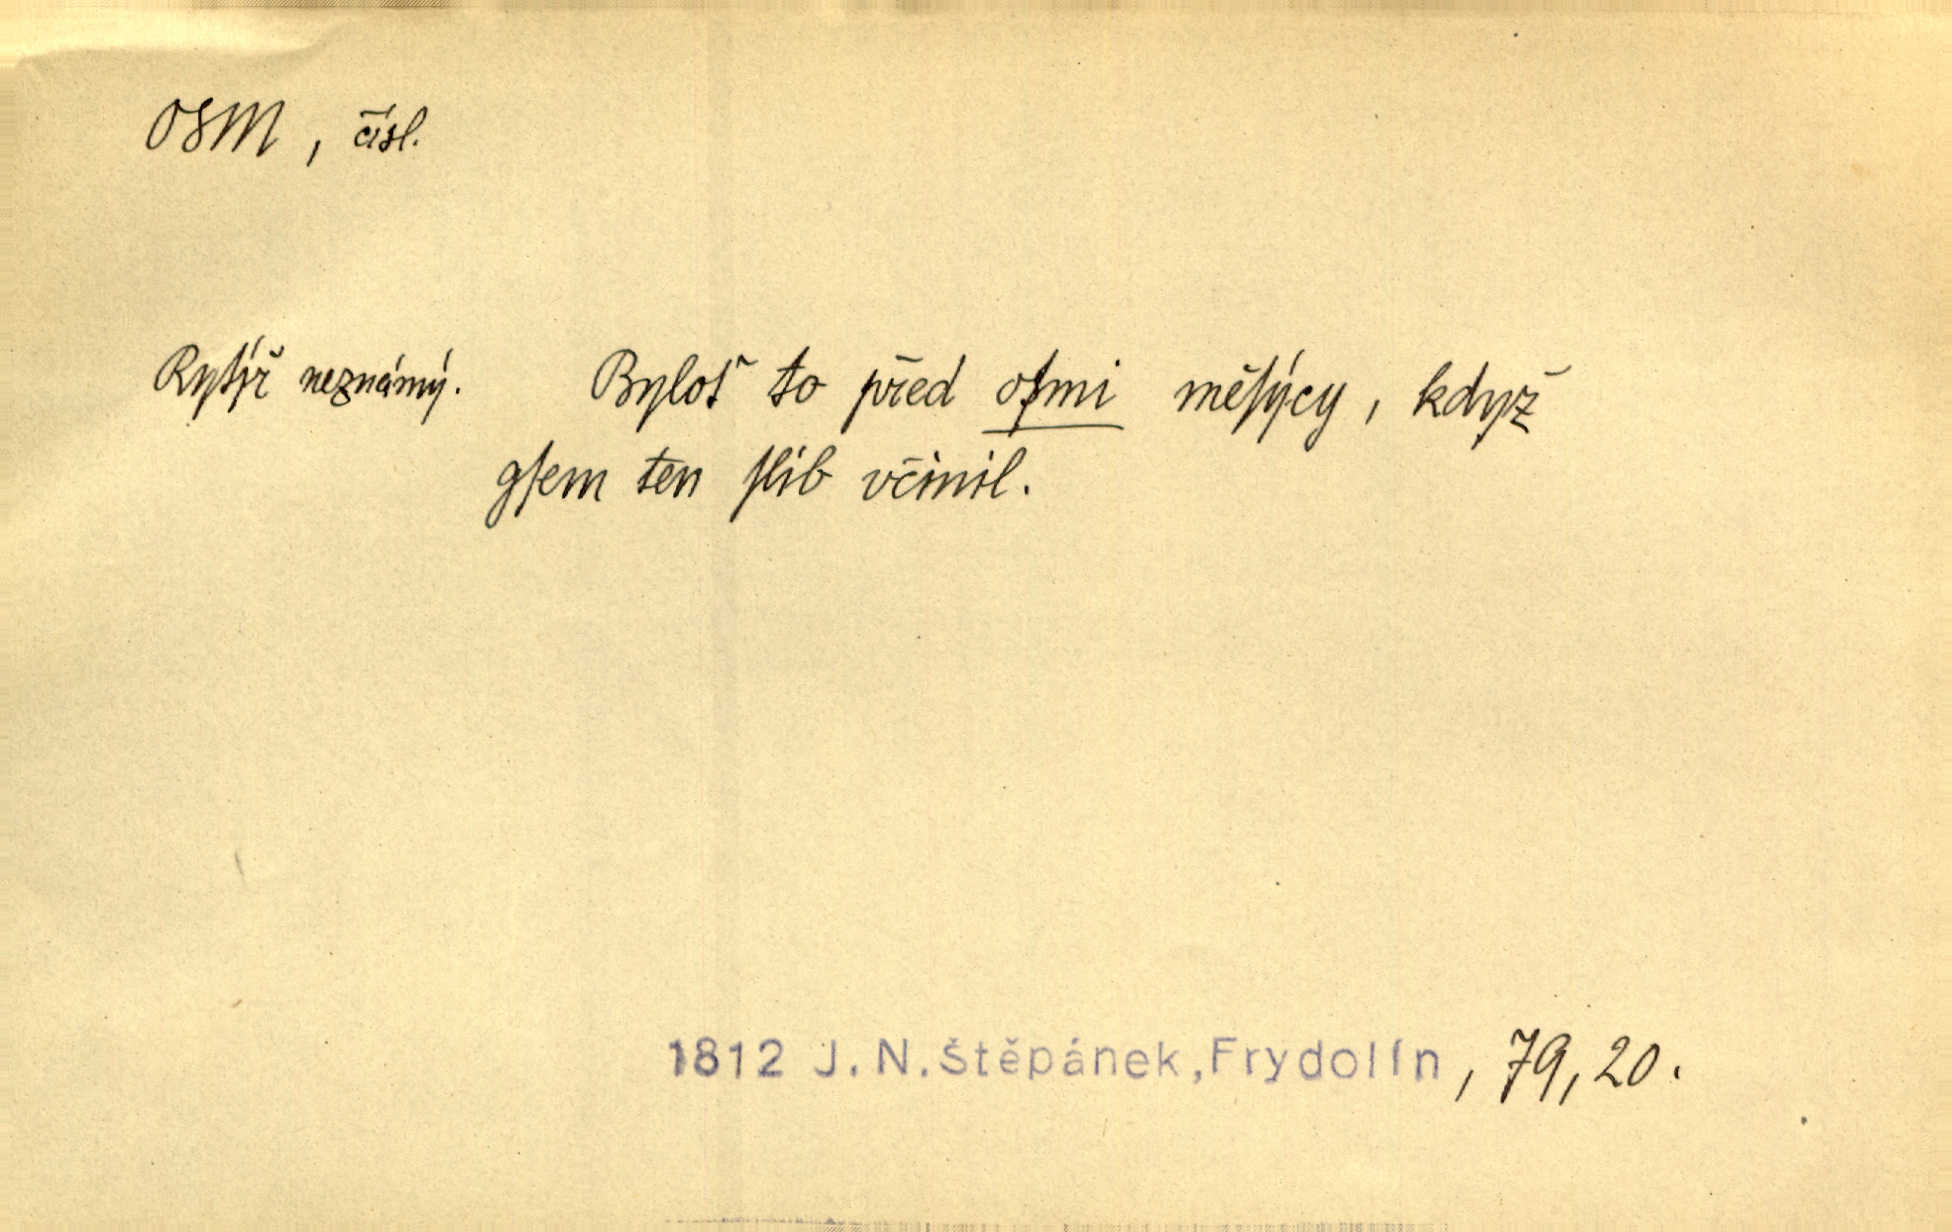 osm, čísl.
Rytíř neznámý. Byloť to před oſmi měſýcy, když
gſem ten ſlib včinil.
1812 J. N. Štěpánek, Frydolín, 79, 20.